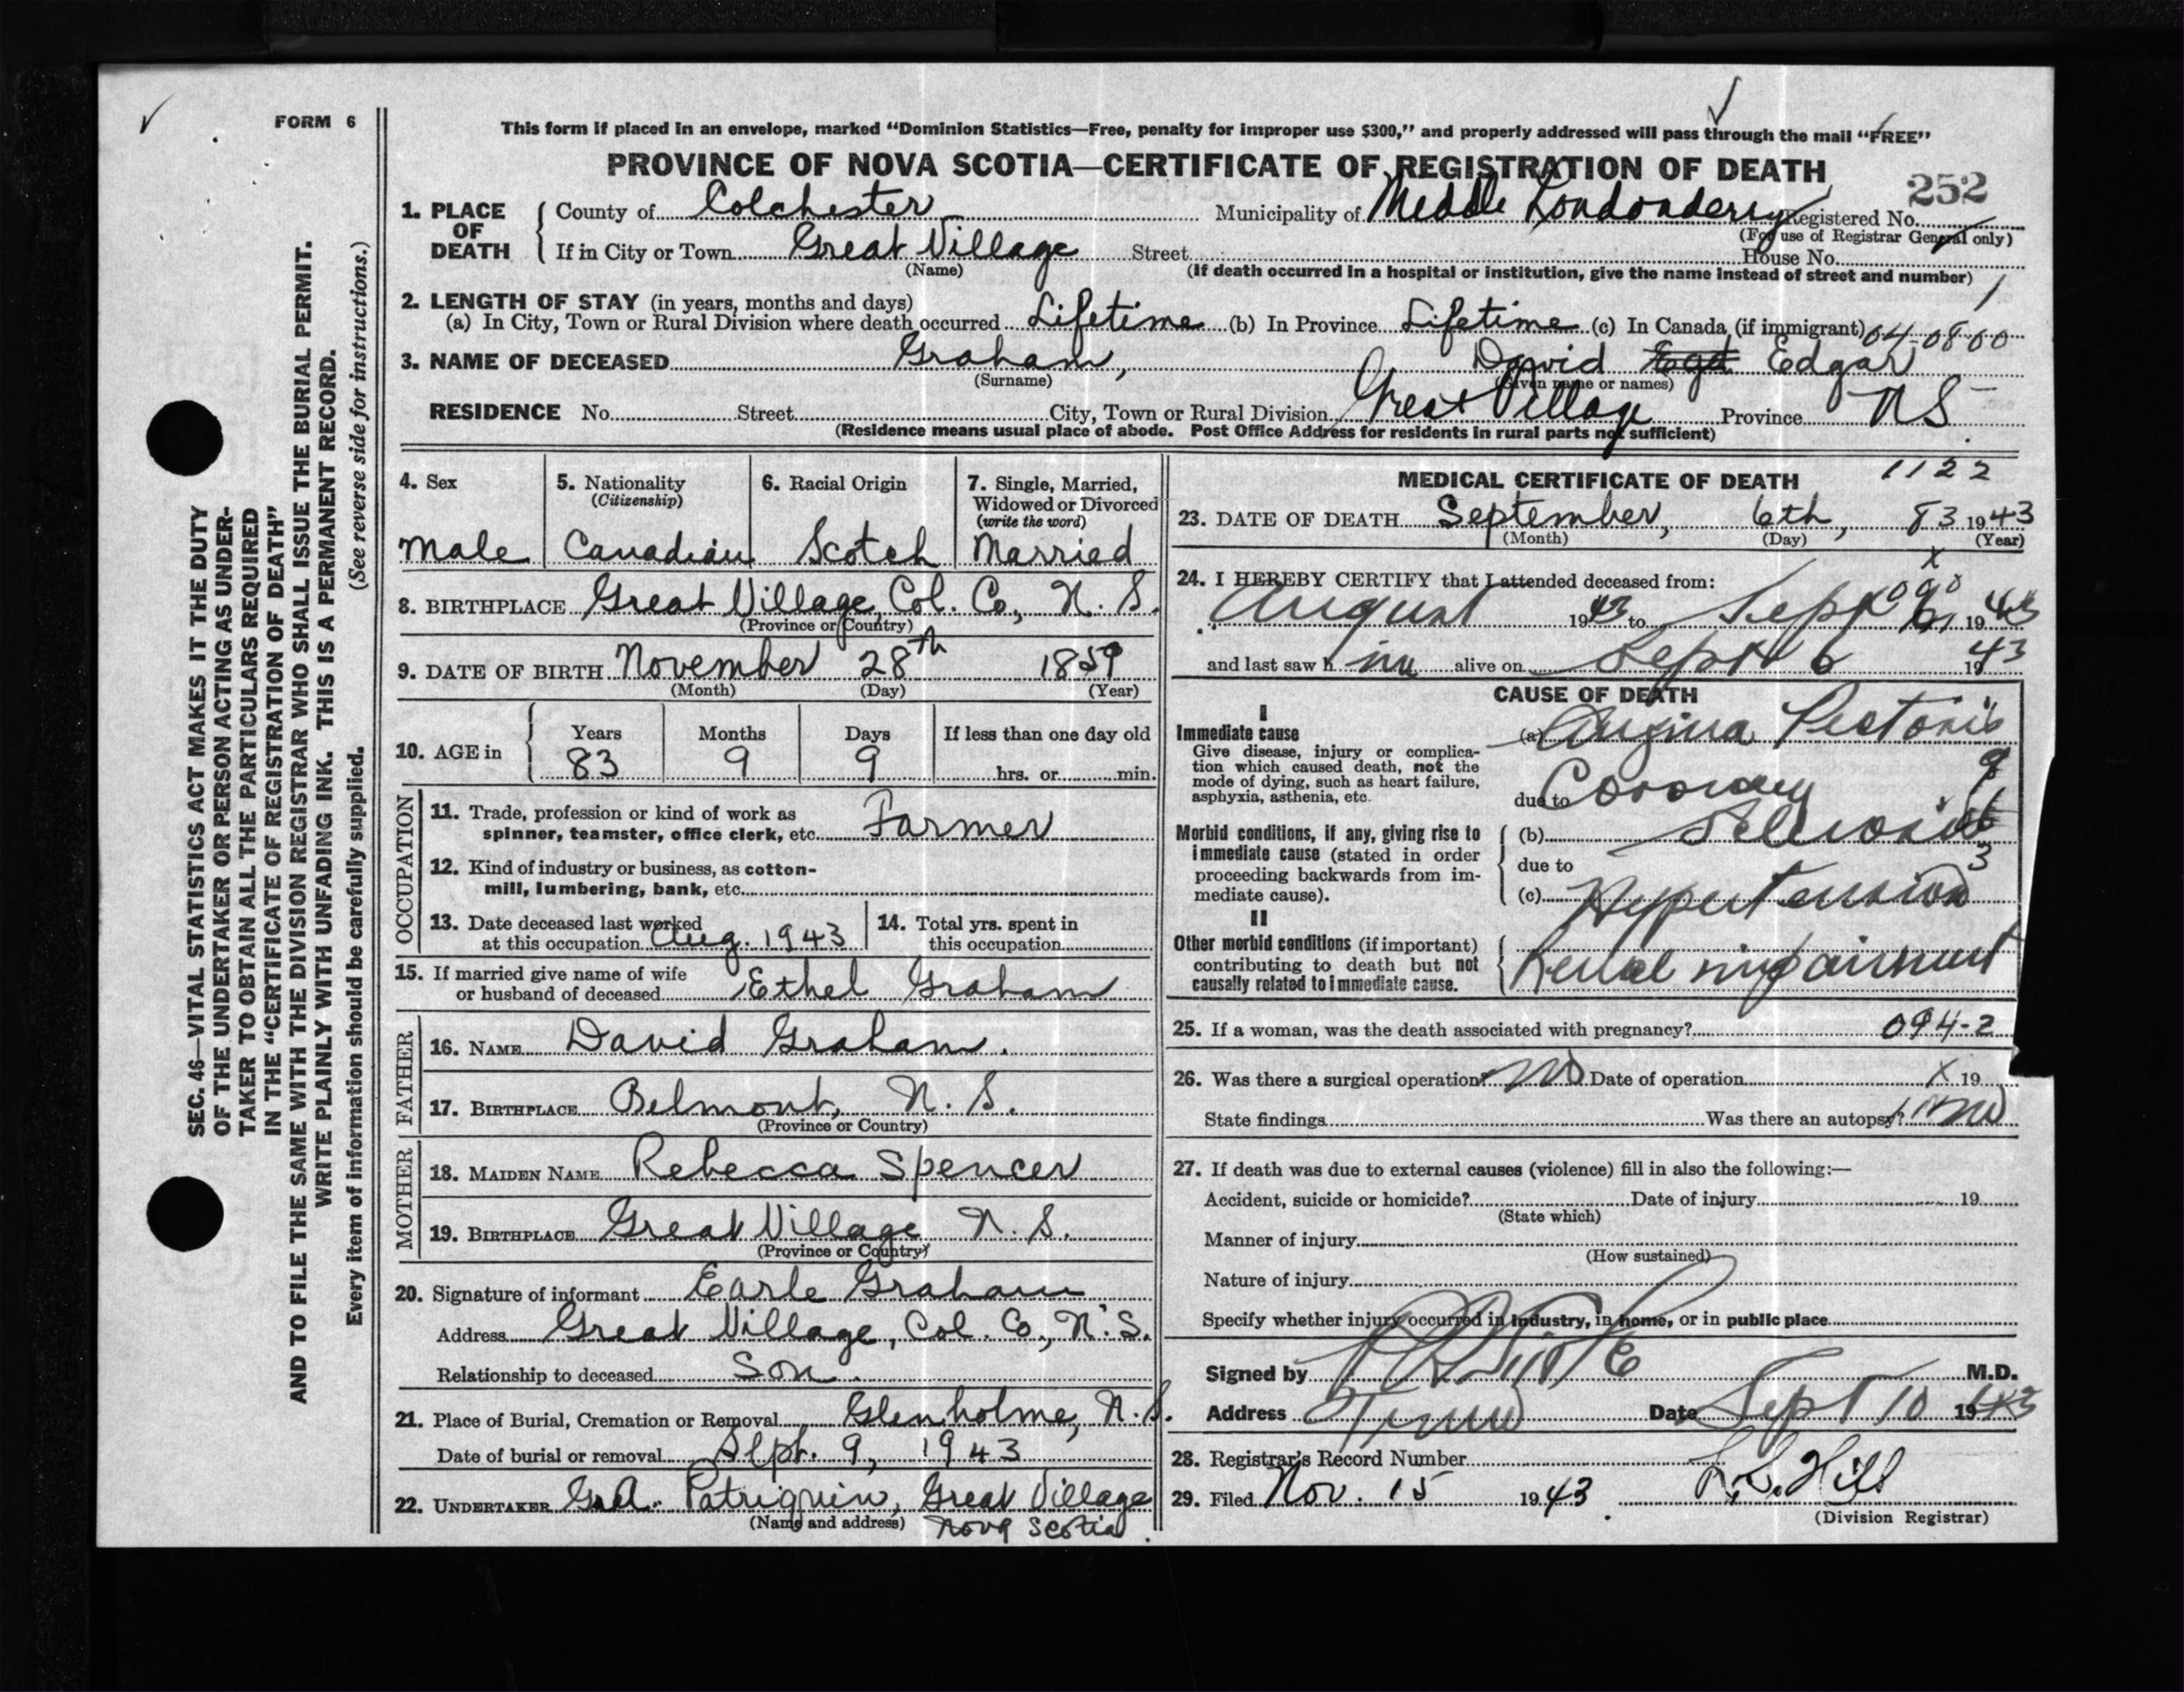 FORM 6
This form if placed in an envelope, marked "Dominion Statistics—Free, penalty for improper use $300," and properly addressed will pass through the mail "FREE"
PROVINCE OF NOVA SCOTIA—CERTIFICATE OF REGISTRATION OF DEATH
252
1. PLACE OF DEATH
County of Colchester Municipality of Middle Londonderry Registered No.
(For use of Registrar General only)
If in City or Town Great Village Street House No.
(Name) (If death occurred in a hospital or institution, give the name instead of street and number)
2. LENGTH OF STAY (in years, months and days)
(a) In City, Town or Rural Division where death occurred Lifetime (b) In Province Lifetime (c) In Canada (if immigrant) 04-0800
3. NAME OF DECEASED Graham, David Edgar
(Surname) (Given name or names)
RESIDENCE No. Street City, Town or Rural Division Great Village Province N S
(Residence means usual place of abode. Post Office Address for residents in rural parts not sufficient)
4. Sex
male
5. Nationality
(Citizenship)
Canadian
6. Racial Origin
Scotch
7. Single, Married,
Widowed or Divorced
(write the word)
Married
8. BIRTHPLACE Great Village, Col. Co., N. S.
(Province or Country)
9. DATE OF BIRTH November 28th 1859
(Month) (Day) (Year)
10. AGE in
Years Months Days If less than one day old
83 9 9 hrs. or min.
OCCUPATION
11. Trade, profession or kind of work as
spinner, teamster, office clerk, etc. Farmer
12. Kind of industry or business, as cotton-
mill, lumbering, bank, etc.
13. Date deceased last worked
at this occupation Aug. 1943
14. Total yrs. spent in
this occupation
15. If married give name of wife
or husband of deceased Ethel Graham
FATHER
16. NAME David Graham.
17. BIRTHPLACE Belmont, N. S.
(Province or Country)
MOTHER
18. MAIDEN NAME Rebecca Spencer
19. BIRTHPLACE Great Village, N. S.
(Province or Country)
20. Signature of informant Earle Graham
Address Great Village, Col. Co., N. S.
Relationship to deceased Son.
21. Place of Burial, Cremation or Removal Glenholme, N. S.
Date of burial or removal Sept. 9, 1943
22. UNDERTAKER G.A. Patriquin, Great Village
(Name and address) Nova Scotia.
MEDICAL CERTIFICATE OF DEATH 1122
23. DATE OF DEATH September, 6th, 83 1943
(Month) (Day) (Year)
24. I HEREBY CERTIFY that I attended deceased from:
August 1943 to Sept 6, 1943
and last saw h im alive on Sept 6 1943
CAUSE OF DEATH
I
Immediate cause
Give disease, injury or complica-
tion which caused death, not the
mode of dying, such as heart failure,
asphyxia, asthenia, etc.
(a) Angina Pectoris
due to Coronary
Morbid conditions, if any, giving rise to
immediate cause (stated in order
proceeding backwards from im-
mediate cause).
(b) Sclerosis
due to
(c) Hypertension
II
Other morbid conditions (if important)
contributing to death but not
causally related to immediate cause.
Renal impairment
25. If a woman, was the death associated with pregnancy? 094-2
26. Was there a surgical operation? No Date of operation X 19
State findings Was there an autopsy? no
27. If death was due to external causes (violence) fill in also the following:—
Accident, suicide or homicide? Date of injury 19
(State which)
Manner of injury
(How sustained)
Nature of injury
Specify whether injury occurred in industry, in home, or in public place
Signed by M.D.
Address Truro Date Sept 10 1943
28. Registrar's Record Number
29. Filed Nov. 15 1943 Hill
(Division Registrar)
SEC. 46—VITAL STATISTICS ACT MAKES IT THE DUTY
OF THE UNDERTAKER OR PERSON ACTING AS UNDER-
TAKER TO OBTAIN ALL THE PARTICULARS REQUIRED
IN THE "CERTIFICATE OF REGISTRATION OF DEATH"
AND TO FILE THE SAME WITH THE DIVISION REGISTRAR WHO SHALL ISSUE THE BURIAL PERMIT.
WRITE PLAINLY WITH UNFADING INK. THIS IS A PERMANENT RECORD.
Every item of information should be carefully supplied. (See reverse side for instructions.)